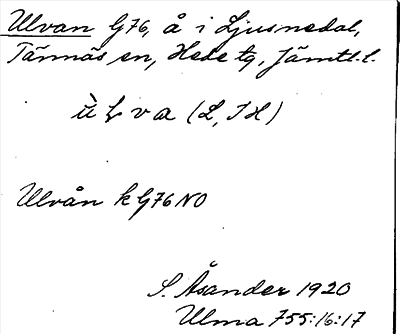 Ulvan G76, å i Ljusnedal,
Tännäs sn, Hede tg, Jämtl. l.
ù̈ɫva (L, JH)
Ulvån k G76 NO
S. Åsander 1920
Ulma 755:16:17